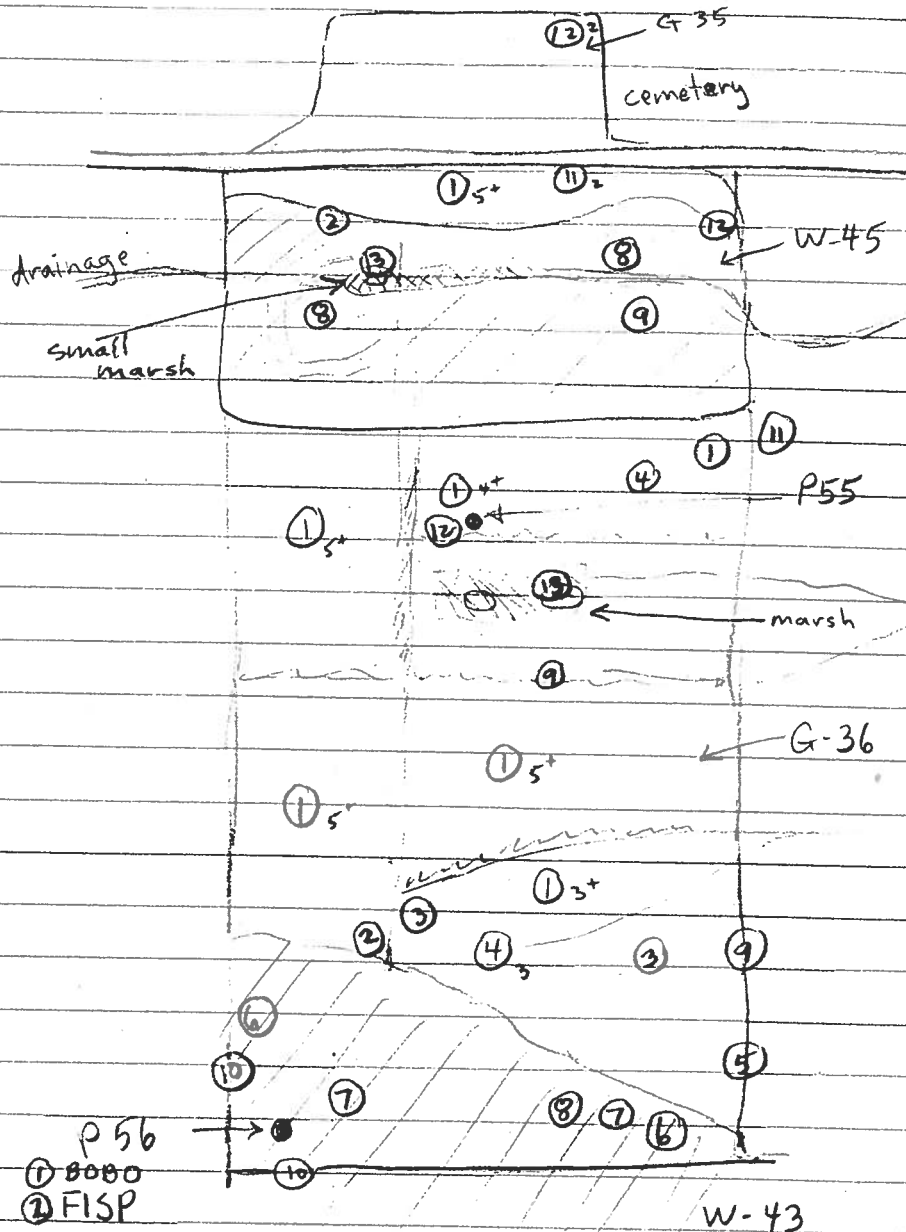 ⑫ 2 G-35
cemetery
① 5+ ⑪ 2
② ⑫
W-45
drainage ⑬ ⑧
⑧ ⑨
small
marsh
① ⑪
① 4+ ④
P55
① 5+ ⑫
⑬
marsh
⑨
G-36
① 5+
① 5+
① 3+
③
② ④ 3 ③ ⑨
⑥
⑩ ⑤
⑦ ⑧ ⑦ ⑥
P 56
① BOBO ⑩
② FISP
W-43